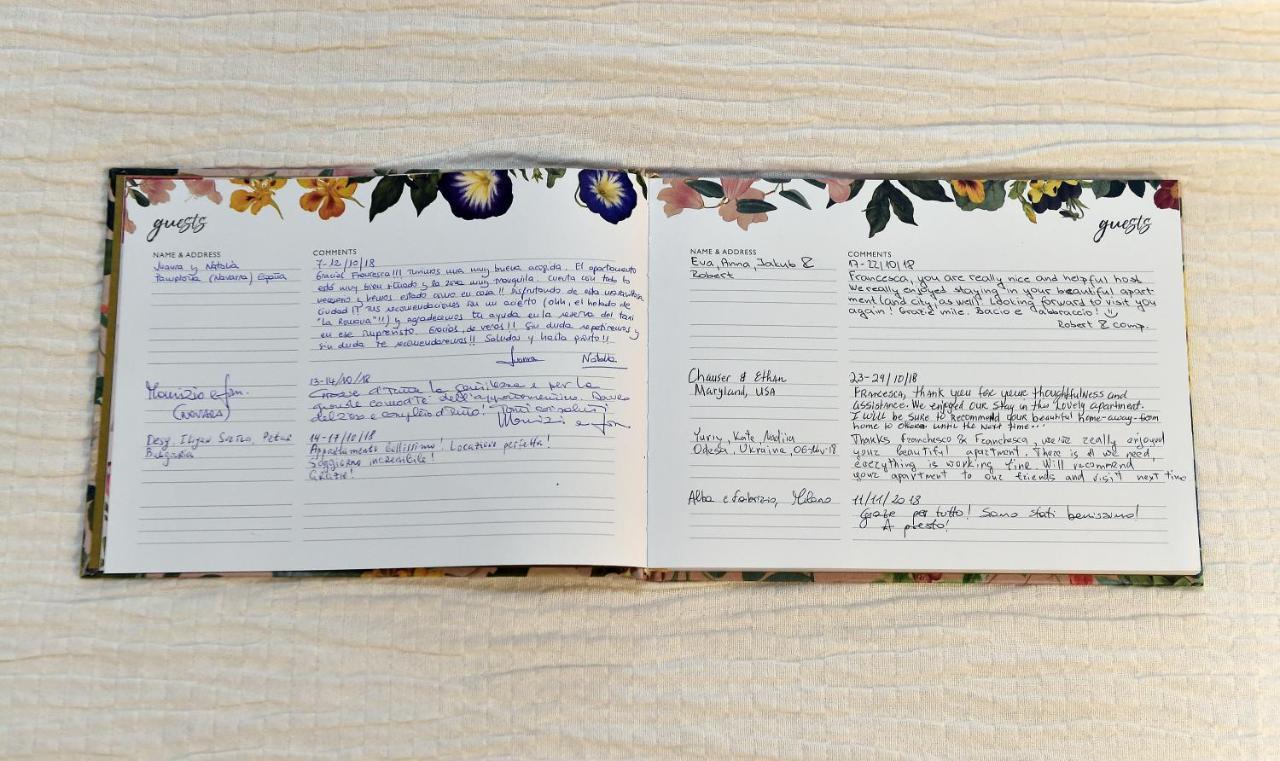 guests
NAME & ADDRESS
COMMENTS
Juana y Natalia
Pamplona (Navarra) España
7-12/10/18
Gracias Francesca!!! Tuvimos una muy buena acogida. El apartamento
está muy bien situado y la zona muy tranquila. Cuenta con todo lo
necesario y hemos estado como en casa!! disfrutando de esta maravillosa
ciudad!! Tus recomendaciones son un acierto (ohh, el helado de
"La Romana"!!) y agradecemos tu ayuda en la reserva del taxi
en ese imprevisto. Gracias, de veras!! Sin duda repetiremos y
sin duda te recomendaremos!! Saludos y hasta pronto!!
Juana Natalia
Maurizio e
(NOVARA)
13-14/10/18
Grazie di tutto la gentilezza e per la
grande comodità dell'appartamentino. Davvero
delizioso e completo di tutto!
Maurizio e
Desy, Iliyan
Bulgaria
14-17/10/18
Appartamento bellissimo! Locazione perfetta!
Soggiorno incredibile!
Grazie!
guests
NAME & ADDRESS
COMMENTS
Eva, Anna, Jakub &
Robert
19-22/10/18
Francesca, you are really nice and helpful host.
We really enjoyed staying in your beautiful apart
ment (and city, as well). Looking forward to visit you
again! Grazie mile. Bacio e abbraccio! !!
Robert & comp.
Chauser & Ethan
Maryland, USA
23-29/10/18
Francesca, thank you for your thoughtfulness and
assistance. We enjoyed our stay in this lovely apartment.
I will be sure to recommend your beautiful home-away-from
home to others until the next time...
Yuriy, Kate, Nadiia
Odesa, Ukraine, 06-Nov-18
Thanks Franchesco & Franchesca, we've really enjoyed
your beautiful apartment. There is all we need,
everything is working fine. Will recommend
your apartment to our friends and visit next time
Alba e Fabrizio, Milano
11/11/2018
Grazie per tutto! Siamo stati benissimo!
A presto!